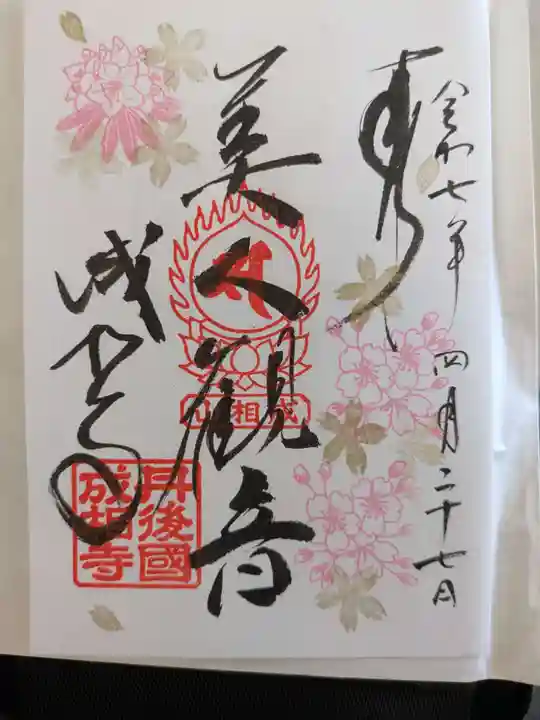 奉
令和七年 四月二十七日
美人観音
成相山
成相寺
丹後國
成相寺